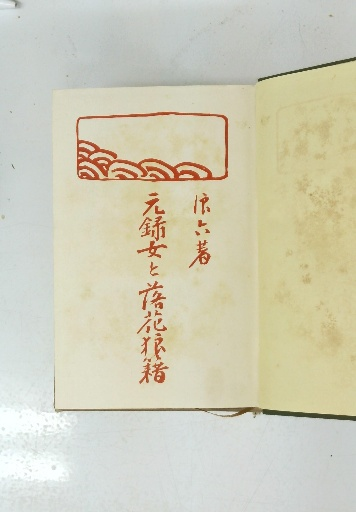 浪六著
元録女と落花狼籍